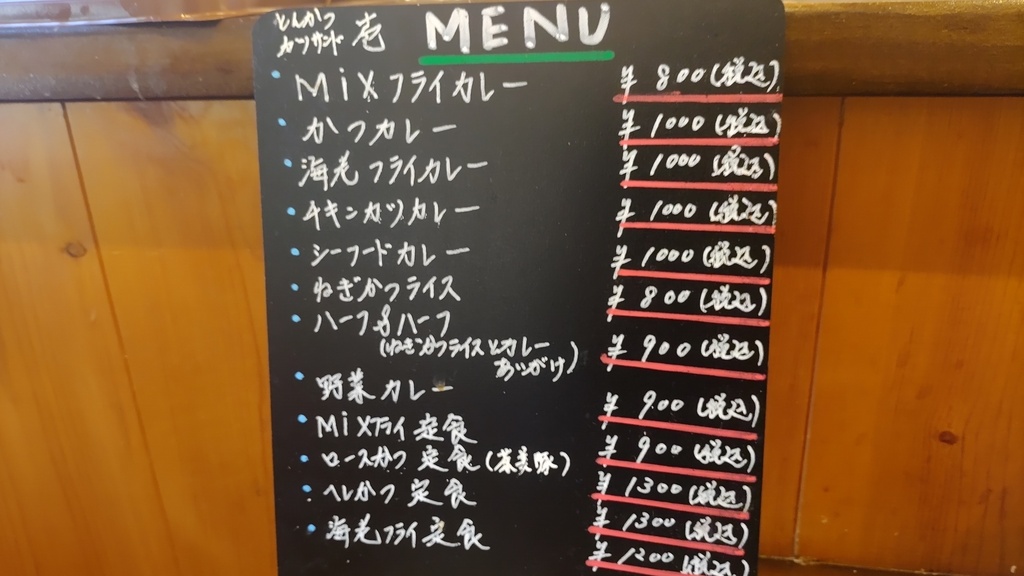 とんかつ
カツサンド 壱 MENU
MiXフライカレー ¥800(税込)
かつカレー ¥1000(税込)
海老フライカレー ¥1000(税込)
チキンカツカレー ¥1000(税込)
シーフードカレー ¥1000(税込)
ねぎかつライス ¥800(税込)
ハーフ&ハーフ
(ねぎかつライスとカレー
あいがけ) ¥900(税込)
野菜カレー ¥900(税込)
MiXフライ定食 ¥900(税込)
ロースかつ定食(蕎麦豚) ¥1300(税込)
ヘレかつ定食 ¥1300(税込)
海老フライ定食 ¥1200(税込)